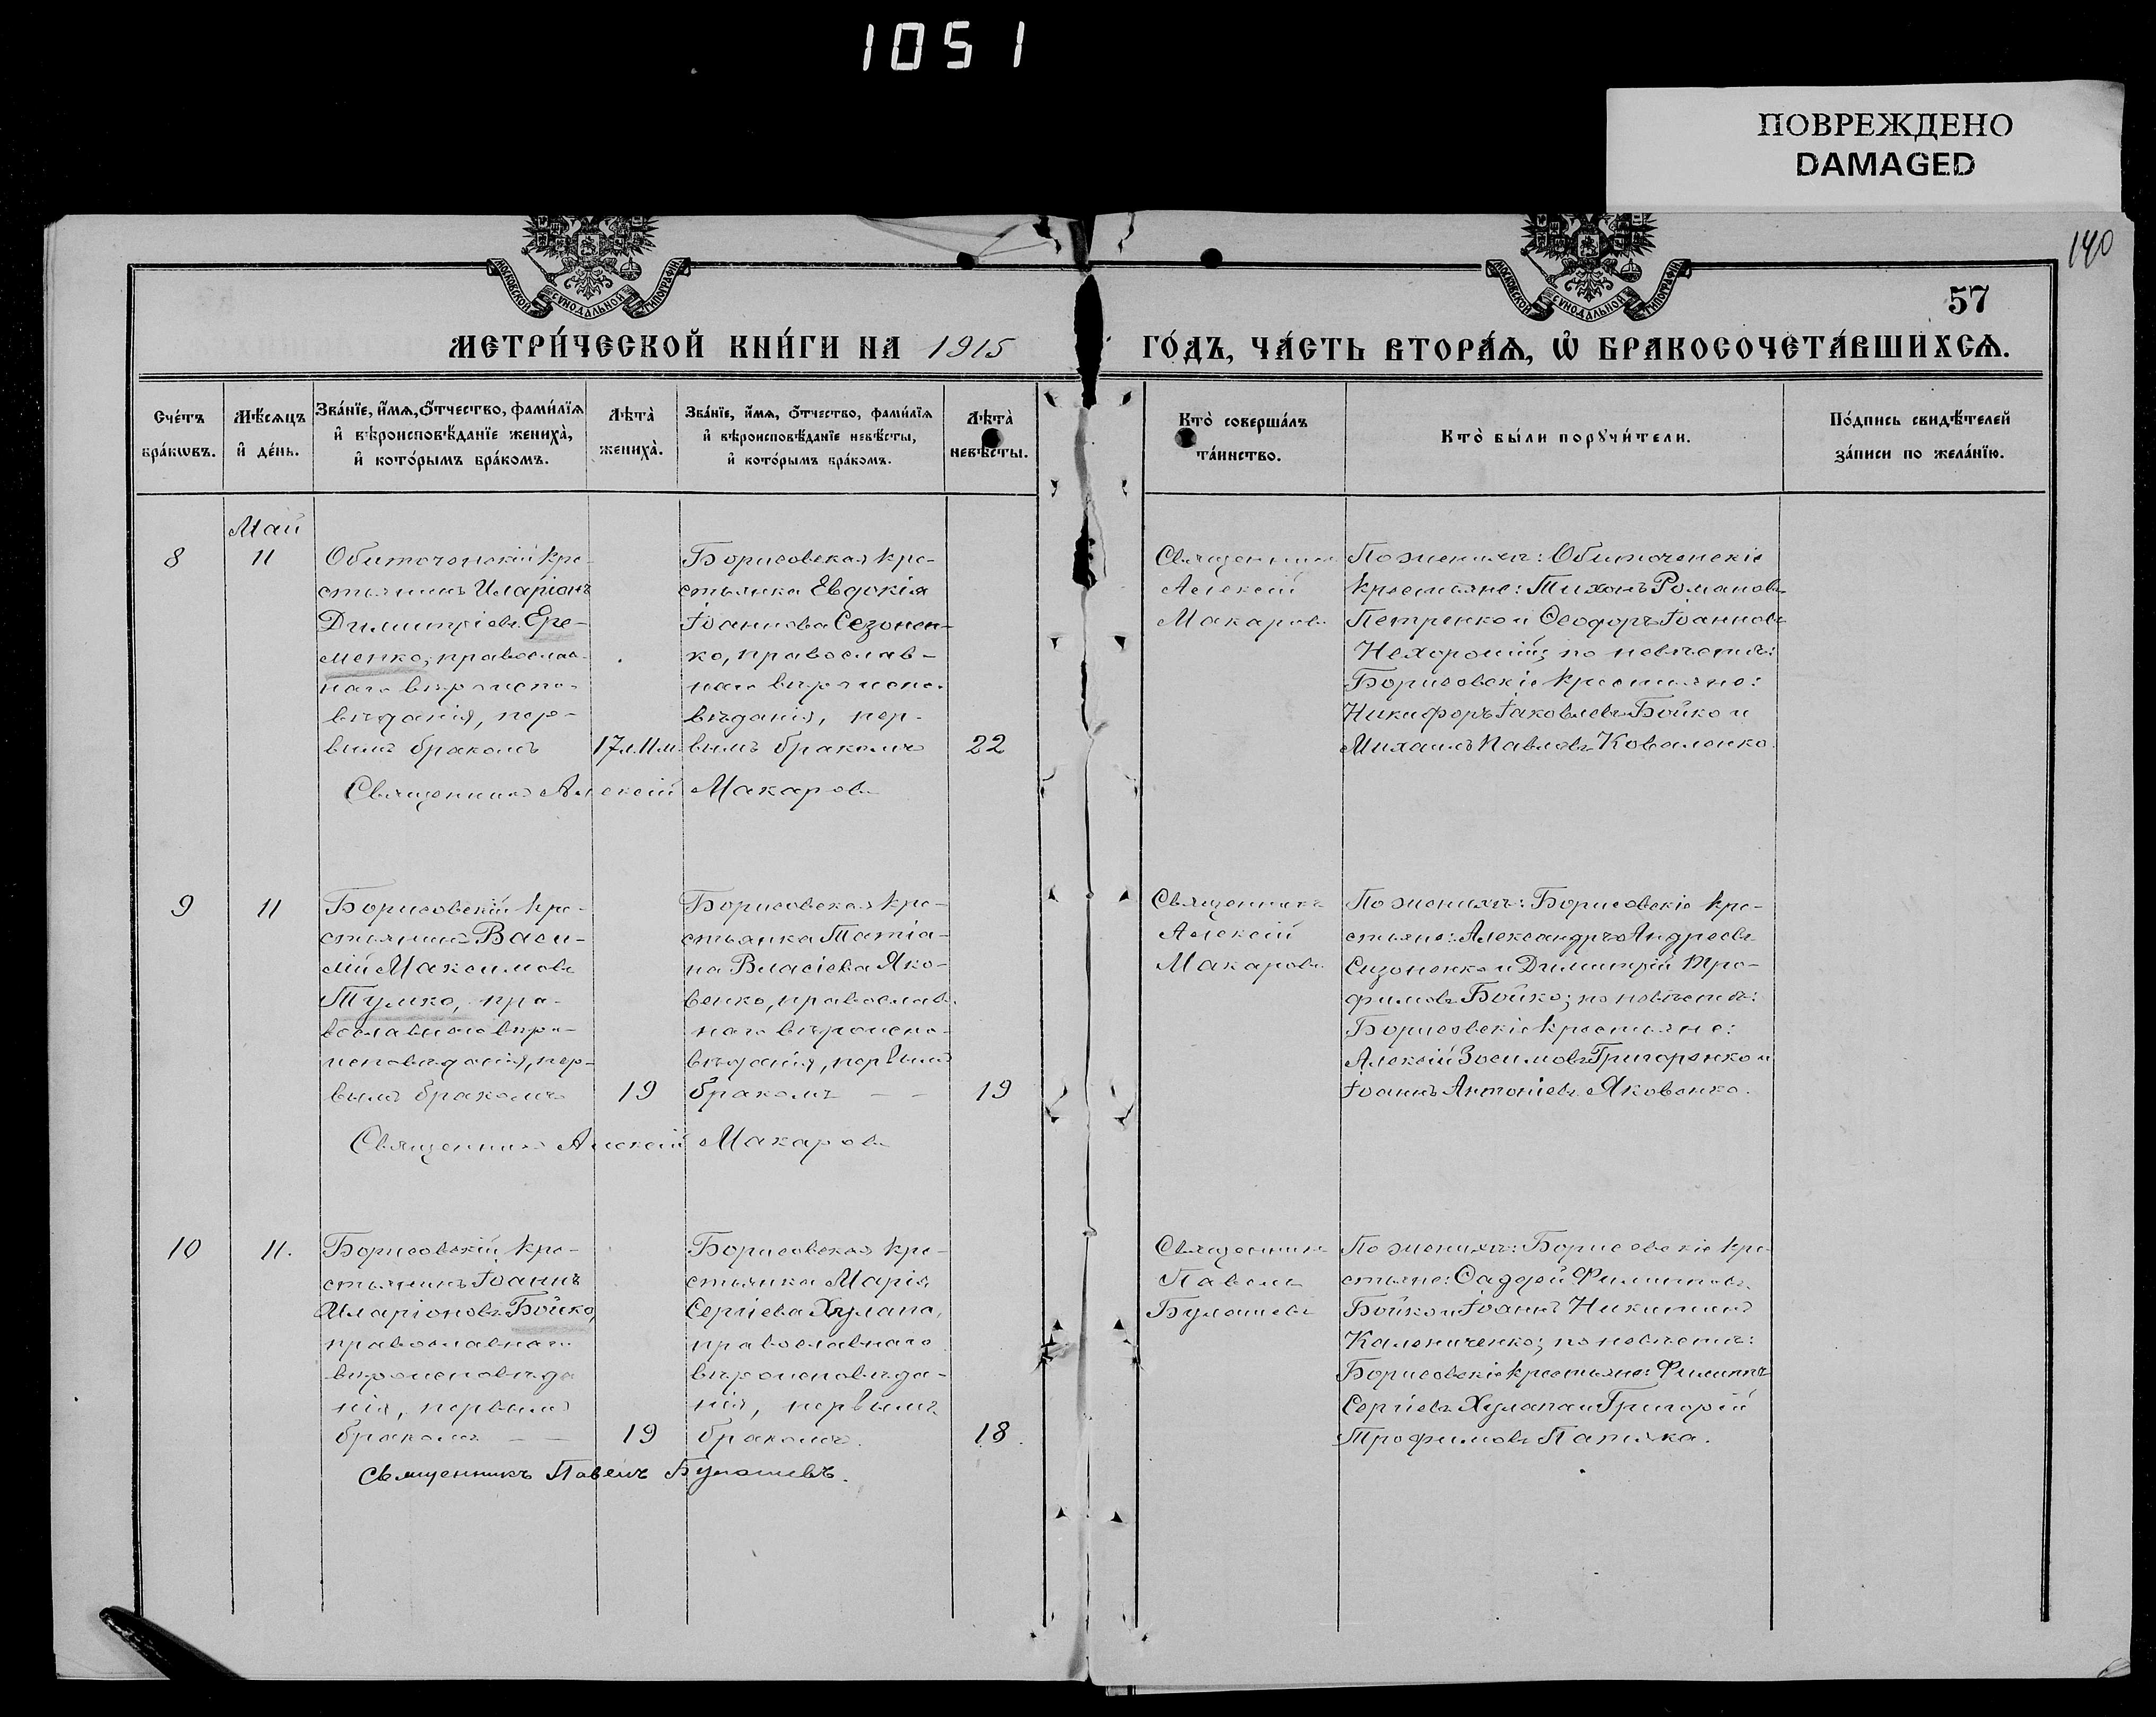 1051
ПОВРЕЖДЕНО
DAMAGED
140
57
МОСКОВСКОЙ СѴНОДАЛЬНОЙ ТИПОГРАФІИ
МОСКОВСКОЙ СѴНОДАЛЬНОЙ ТИПОГРАФІИ
МЕТРИ́ЧЕСКОЙ КНИ́ГИ НА 1915
ГО́ДЪ, ЧА́СТЬ ВТОРА́Ѧ, Ѡ҆ БРАКОСОЧЕТА́ВШИХСѦ.
Сче́тъ бра́кѡвъ.
Мѣ́сѧцъ и҆ де́нь.
Зва́нїе, и҆́мѧ, ѻ҆́тчество, фами́лїѧ
и҆ вѣроисповѣ́данїе жениха̀,
и҆ кото́рымъ бра́комъ.
Лѣта̀ жениха̀.
Зва́нїе, и҆́мѧ, ѻ҆́тчество, фами́лїѧ
и҆ вѣроисповѣ́данїе невѣ́сты,
и҆ кото́рымъ бра́комъ.
Лѣта̀ невѣ́сты.
Кто̀ соверша́лъ
та́инство.
Кто̀ бы́ли порꙋчи́тели.
По́дпись свидѣ́телей
за́писи по жела́нїю.
Май
8
11
Обиточенскій кре-
стьянинъ Иларіонъ
Димитріевъ Ере-
менко, православ-
наго вѣроиспо-
вѣданія, пер-
вымъ бракомъ
17 л. 11 м.
Борисовская кре-
стьянка Евдокія
Іоаннова Сезонен-
ко, православ-
наго вѣроиспо-
вѣданія, пер-
вымъ бракомъ
22
Священникъ
Алексій
Макаровъ
По женихѣ: Обиточенскіе
крестьяне: Тихонъ Романовъ
Петренко и Ѳеодоръ Іоанновъ
Нехорошій; по невѣстѣ:
Борисовскіе крестьяне:
Никифоръ Іаковлевъ Бойко и
Михаилъ Павловъ Коваленко.
Священникъ Алексій Макаровъ
9
11
Борисовскій кре-
стьянинъ Васи-
лій Максимовъ
Тумко, пра-
вославнаго вѣро-
исповѣданія, пер-
вымъ бракомъ
19
Борисовская кре-
стьянка Татіа-
на Власіева Яко-
венко, православ-
наго вѣроиспо-
вѣданія, первымъ
бракомъ — —
19
Священникъ
Алексій
Макаровъ
По женихѣ: Борисовскіе кре-
стьяне: Александръ Андреевъ
Сизоненко и Димитрій Тро-
фимовъ Бойко; по невѣстѣ:
Борисовскіе крестьяне:
Алексій Зосимовъ Григоренко и
Іоаннъ Антоніевъ Яковенко.
Священникъ Алексій Макаровъ
10
11.
Борисовскій кре-
стьянинъ Іоаннъ
Иларіоновъ Бойко,
православнаго
вѣроисповѣда
нія, первымъ
бракомъ — —
19
Борисовская кре-
стьянка Марія
Сергіева Хулапа,
православнаго
вѣроисповѣда-
нія, первымъ
бракомъ.
18.
Священникъ
Павелъ
Булашевъ
По женихѣ: Борисовскіе кре-
стьяне: Ѳаддей Филипповъ
Бойко и Іоаннъ Никитинъ
Калениченко; по невѣстѣ:
Борисовскіе крестьяне: Филиппъ
Сергіевъ Хулапа и Григорій
Трофимовъ Патяка.
Священникъ Павелъ Булашевъ.